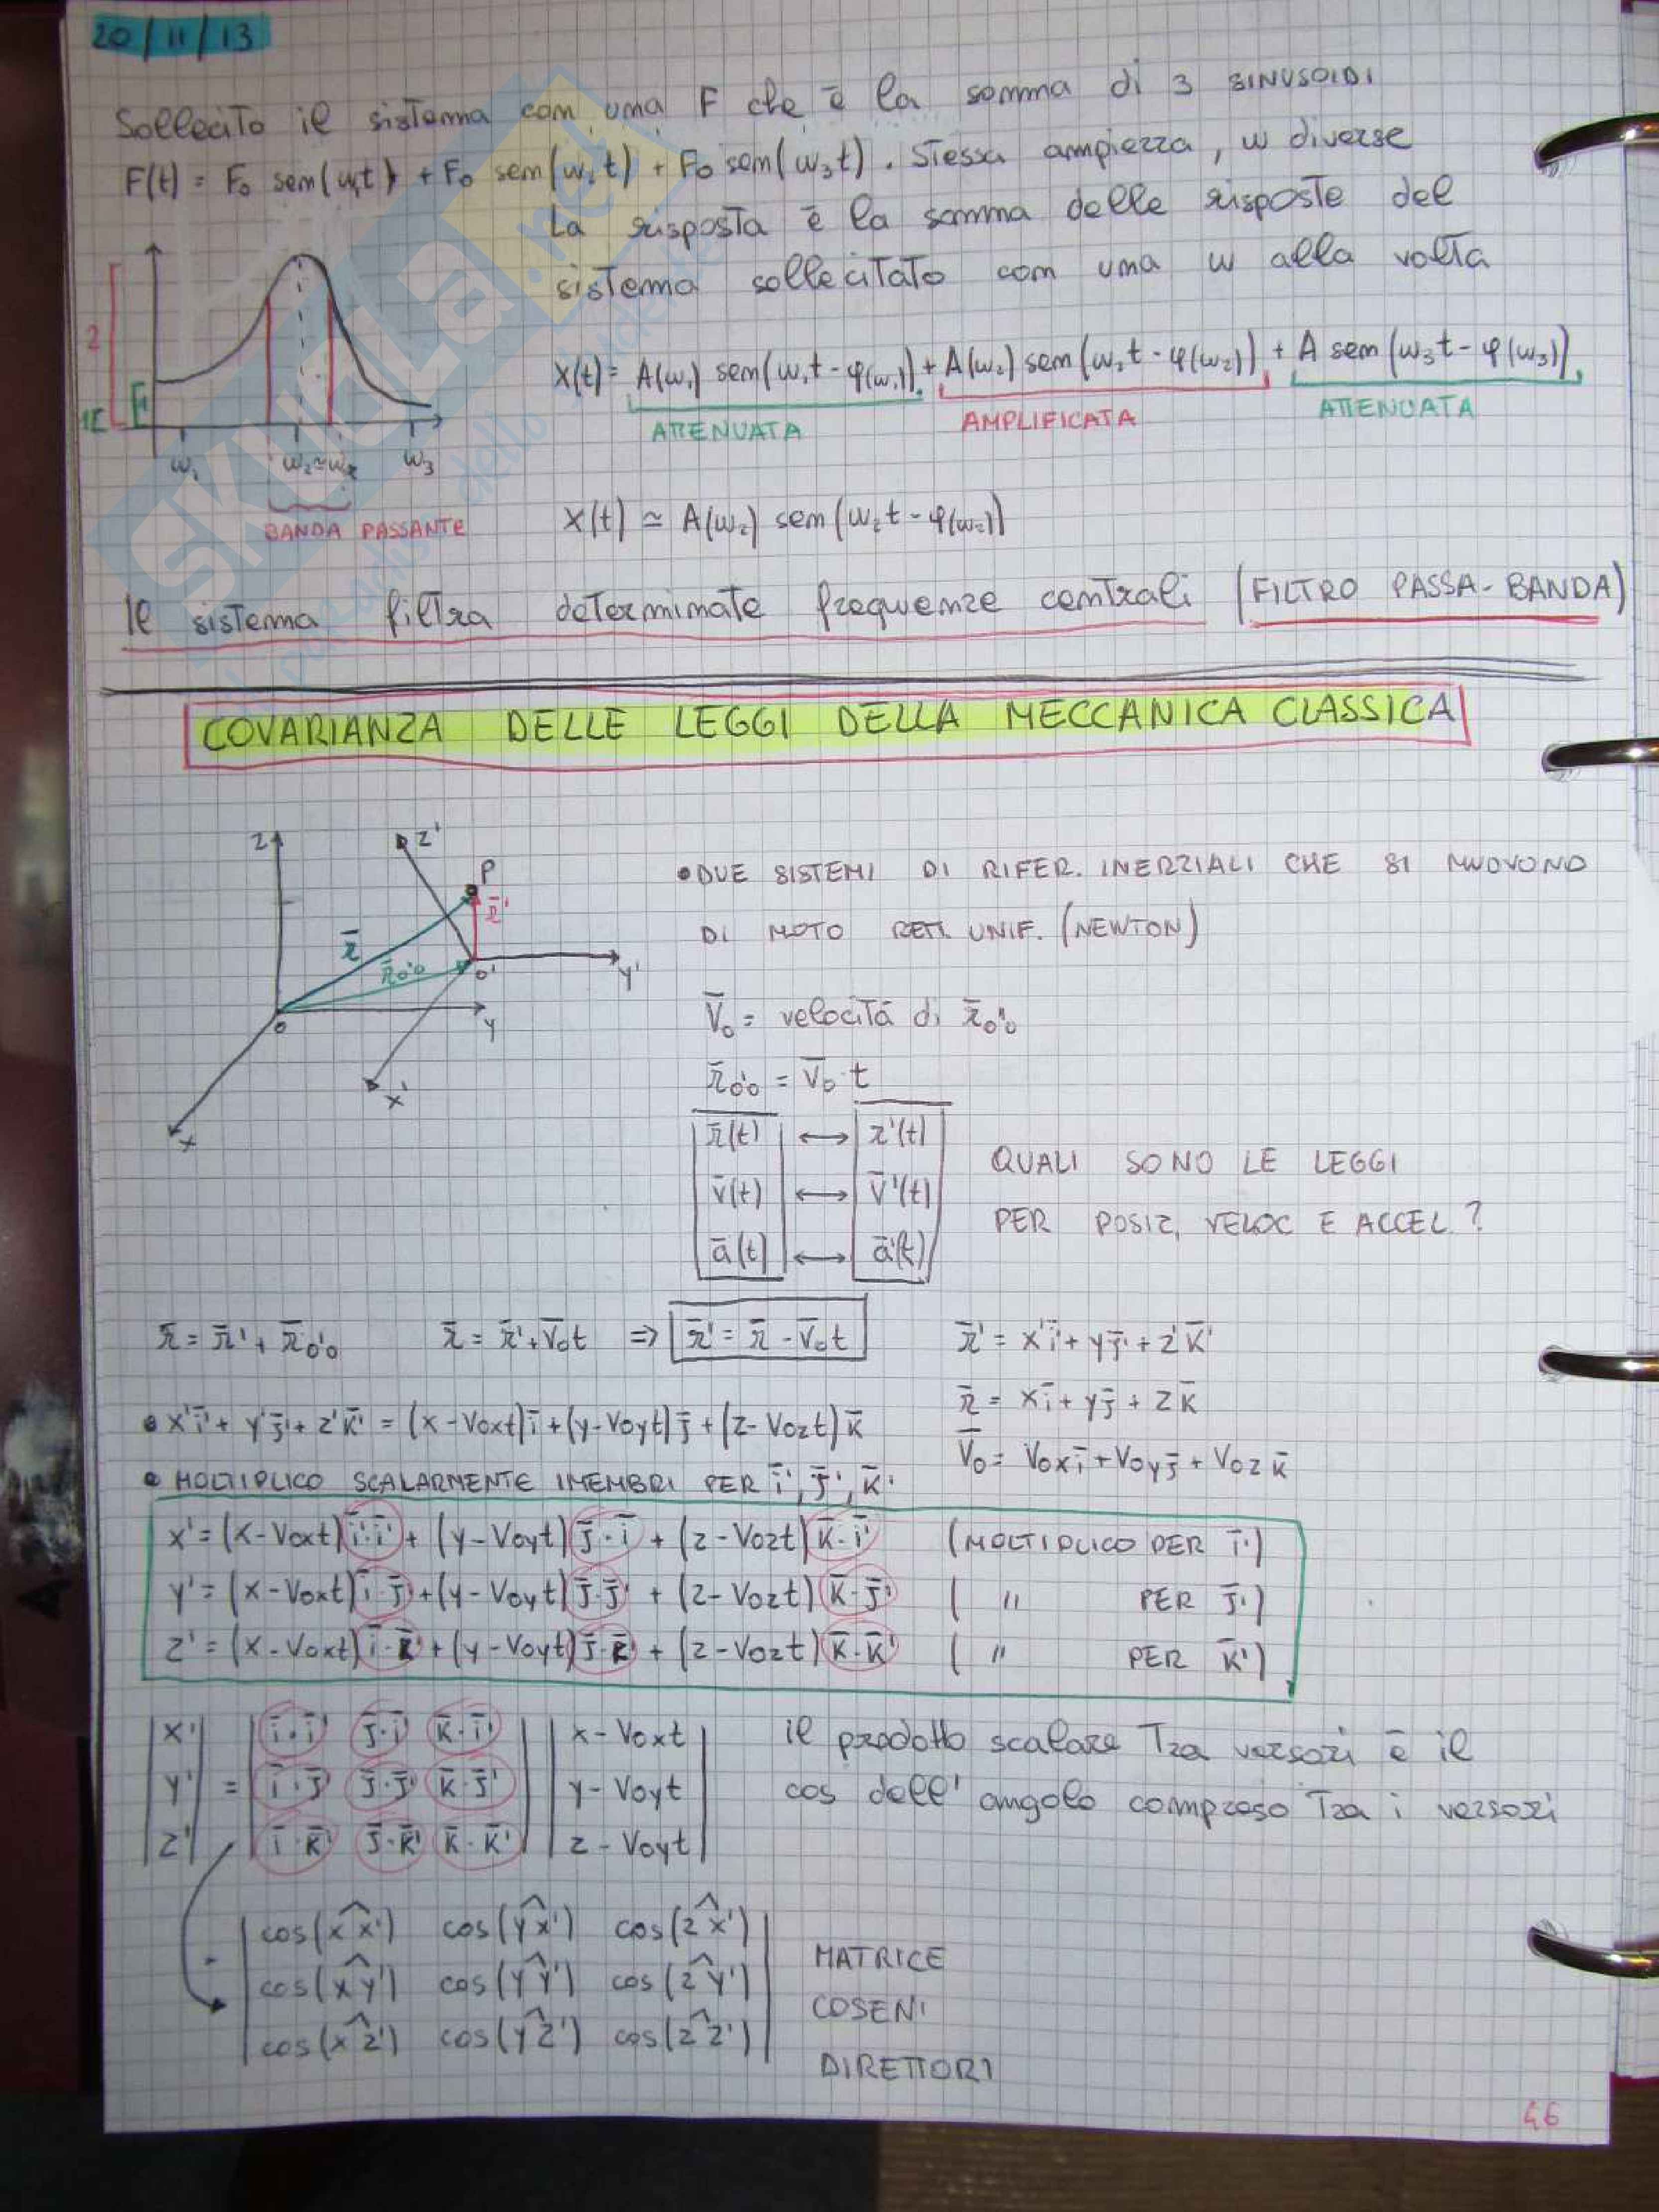 20/11/13
Sollecito il sistema con una F che è la somma di 3 SINUSOIDI
F(t) = F₀ sen(ω₁t) + F₀ sen(ω₂t) + F₀ sen(ω₃t). Stessa ampiezza, ω diverse
La risposta è la somma delle risposte del
sistema sollecitato con una ω alla volta
2
x(t) = A(ω₁) sen(ω₁t - φ(ω₁)) + A(ω₂) sen(ω₂t - φ(ω₂)) + A sen(ω₃t - φ(ω₃))
ATTENUATA AMPLIFICATA ATTENUATA
ω₁ ω₂≃ω ω₃
BANDA PASSANTE
x(t) ≃ A(ω₂) sen(ω₂t - φ(ω₂))
Il sistema filtra determinate frequenze centrali (FILTRO PASSA-BANDA)
COVARIANZA DELLE LEGGI DELLA MECCANICA CLASSICA
z z' P r̄' r̄ r̄o'o o' y' o y x' x
• DUE SISTEMI DI RIFER. INERZIALI CHE SI MUOVONO
DI MOTO RETT. UNIF. (NEWTON)
V̄₀ = velocità di r̄o'o
r̄o'o = V̄₀·t
r̄(t) ↔ r'(t)
v̄(t) ↔ v̄'(t)
ā(t) ↔ ā'(t)
QUALI SONO LE LEGGI
PER POSIZ, VELOC E ACCEL.?
r̄ = r̄' + r̄o'o r̄ = r̄' + V̄₀t ⇒ r̄' = r̄ - V̄₀t r̄' = x'ī' + yj̄' + z'k̄'
r̄ = xī + yj̄ + zk̄
• x'ī' + y'j̄' + z'k̄' = (x - Voxt)ī + (y - Voyt)j̄ + (z - Vozt)k̄
V̄₀ = Voxī + Voyj̄ + Vozk̄
• MOLTIPLICO SCALARMENTE I MEMBRI PER ī', j̄', k̄'
x' = (x - Voxt)ī·ī' + (y - Voyt)j̄·ī + (z - Vozt)k̄·ī' (MOLTIPLICO PER ī')
y' = (x - Voxt)ī·j̄' + (y - Voyt)j̄·j̄' + (z - Vozt)k̄·j̄' ( " PER j̄')
z' = (x - Voxt)ī·k̄' + (y - Voyt)j̄·k̄' + (z - Vozt)k̄·k̄' ( " PER k̄')
|x'| |ī·ī' j̄·ī' k̄·ī'| |x - Voxt|
|y'| = |ī·j̄' j̄·j̄' k̄·j̄'| |y - Voyt|
|z'| |ī·k̄' j̄·k̄' k̄·k̄'| |z - Voyt|
il prodotto scalare Tra versori è il
cos dell'angolo compreso Tra i versori
cos(x^x') cos(y^x') cos(z^x')
cos(x^y') cos(y^y') cos(z^y')
cos(x^z') cos(y^z') cos(z^z')
MATRICE
COSENI
DIRETTORI
46
SKUOLA.net